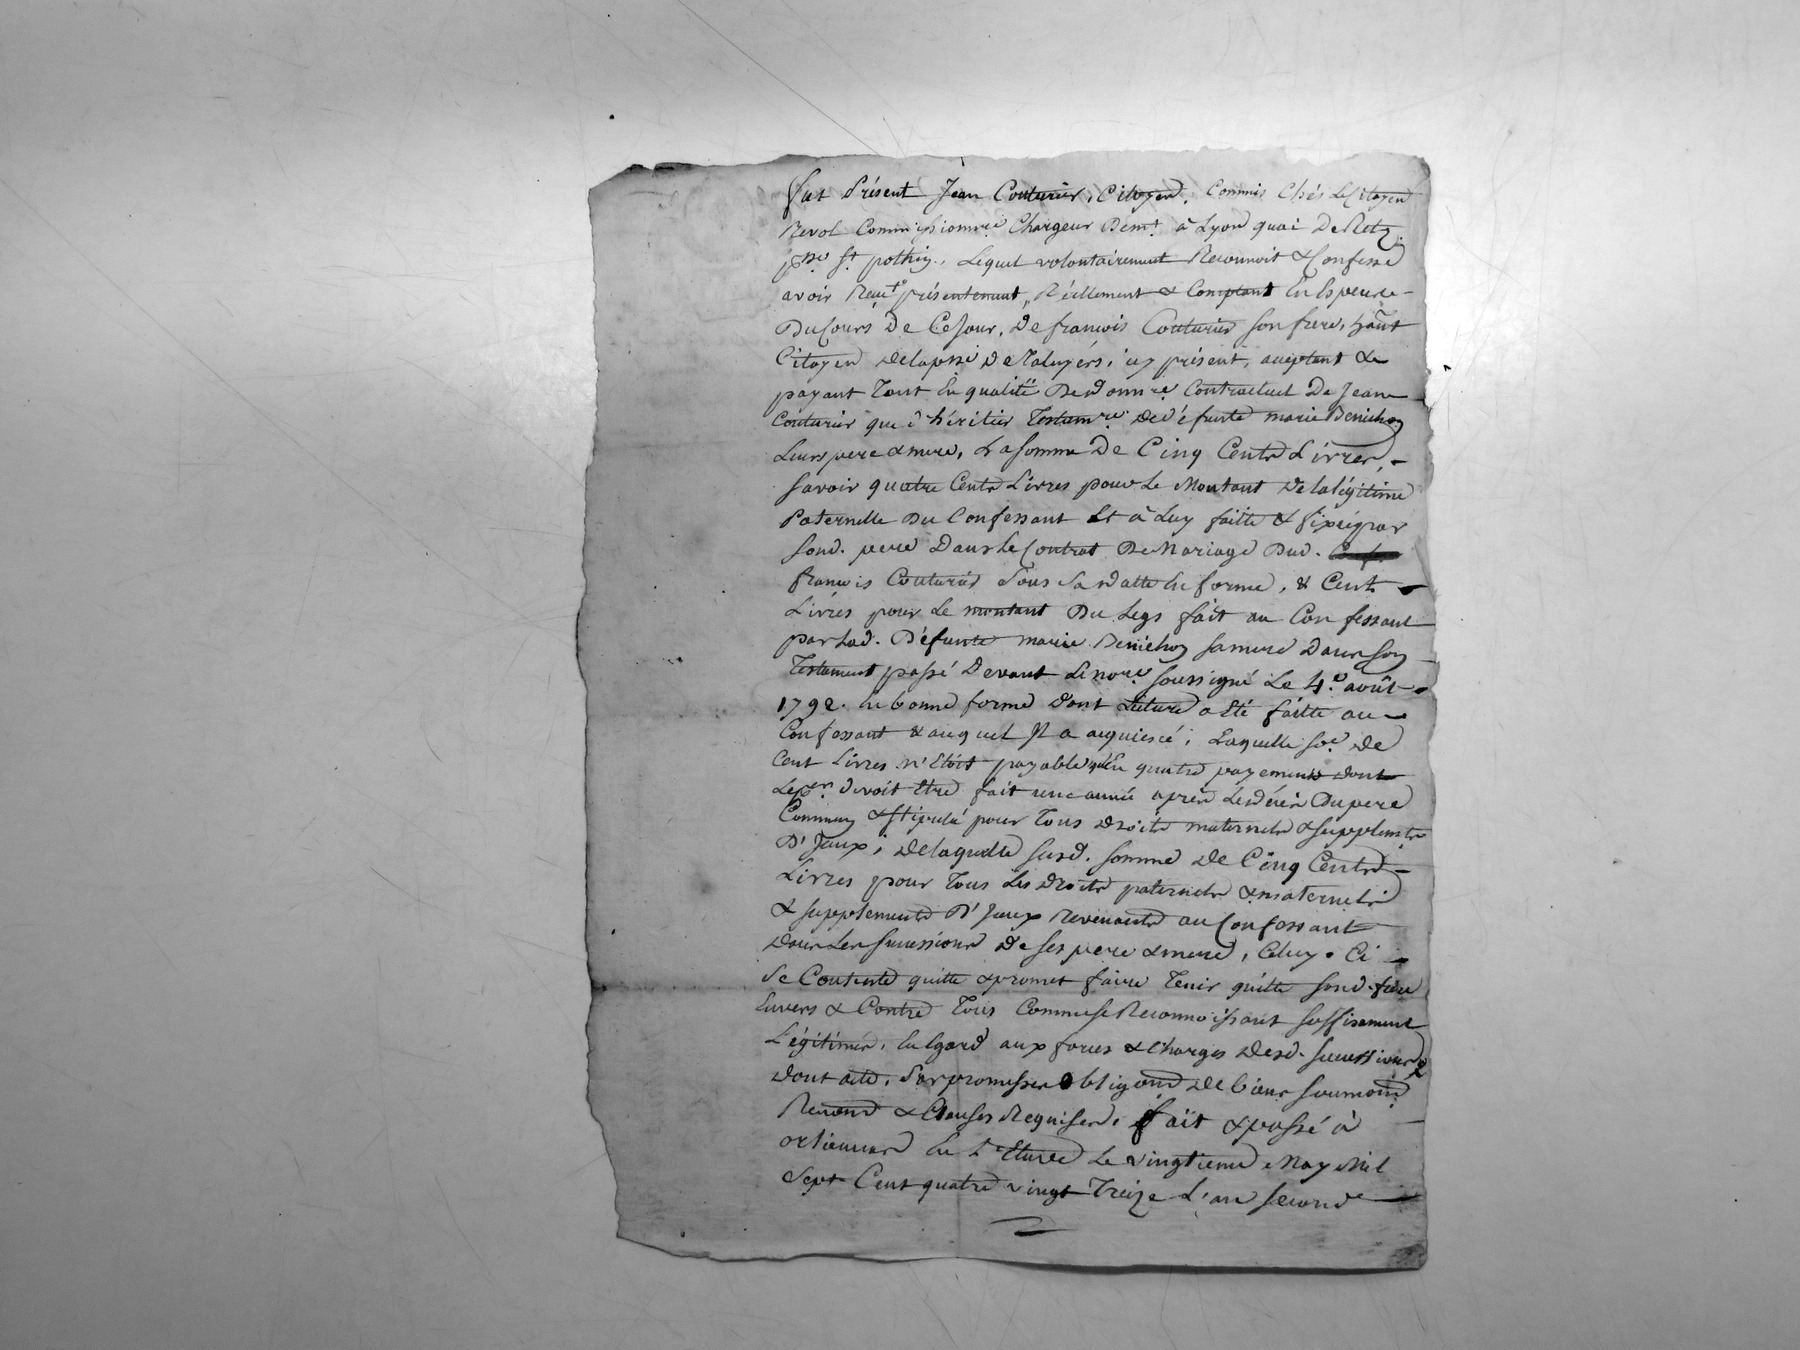 fut Présent Jean Couturier, Citoyen, Commis Chés Le Citoyen
Revol Commissionnre Chargeur Demt à Lyon quai De Retz
psse St pothin, Lequel volontairement Reconnoit & Confesse
avoir Reçu présentement, Réellement & Comptant En Especes
Du Cours De Ce Jour, De francois Couturier son frere, hant
Citoyen delapsse De Taluyers, icy présent, acceptant &
payant Tant En qualité De Donnre Contractuel De Jean
Couturier que d'héritier Testamre De défunte marie Benichon
Leurs pere & mere, La somme De Cinq Cents Livres,
Savoir quatre Cents Livres pour Le Montant De la légitime
Paternelle Du Confessant Et à Luy faitte & fixée par
sond. pere Dans le Contrat De Mariage Dud.
francois Couturier Sous Sa datte En forme, & Cent
Livres pour Le montant Du Legs fait au Confessant
par Lad. Défunte marie Benichon sa mere Dans son
Testament passé Devant Le nore soussigné Le 4e août
1792. En bonne forme Dont Lecture a Eté faitte au
Confessant & auquel Il a acquiescé, Laquelle se de
Cent Livres n'Etoit payable qu'En quatre payements dont
Le per devoit Etre fait une année après Le décès Du pere
Commun & stipulé pour Tous Droits maternels & supplements
D'Iceux, De laquelle susd. somme De Cinq Cents
Livres pour Tous Les Droits paternels & maternels
& supplements D'Iceux Revenants au Confessant
Dans Les successions De ses pere & mere, Celuy-Ci
Se Contente quitte & promet faire Tenir quitte sond. frere
Envers & Contre Tous Comme se Reconnoissant suffisement
Légitimé, Eu Egard aux forces & Charges Desd. successions
Dont acte, Par promesses obligaons De biens soumons
Renons & Clauses Requises, fait & passé à
orlienas En L'Etude Le vingtieme May Mil
Sept Cent quatre vingt Treize L'an second